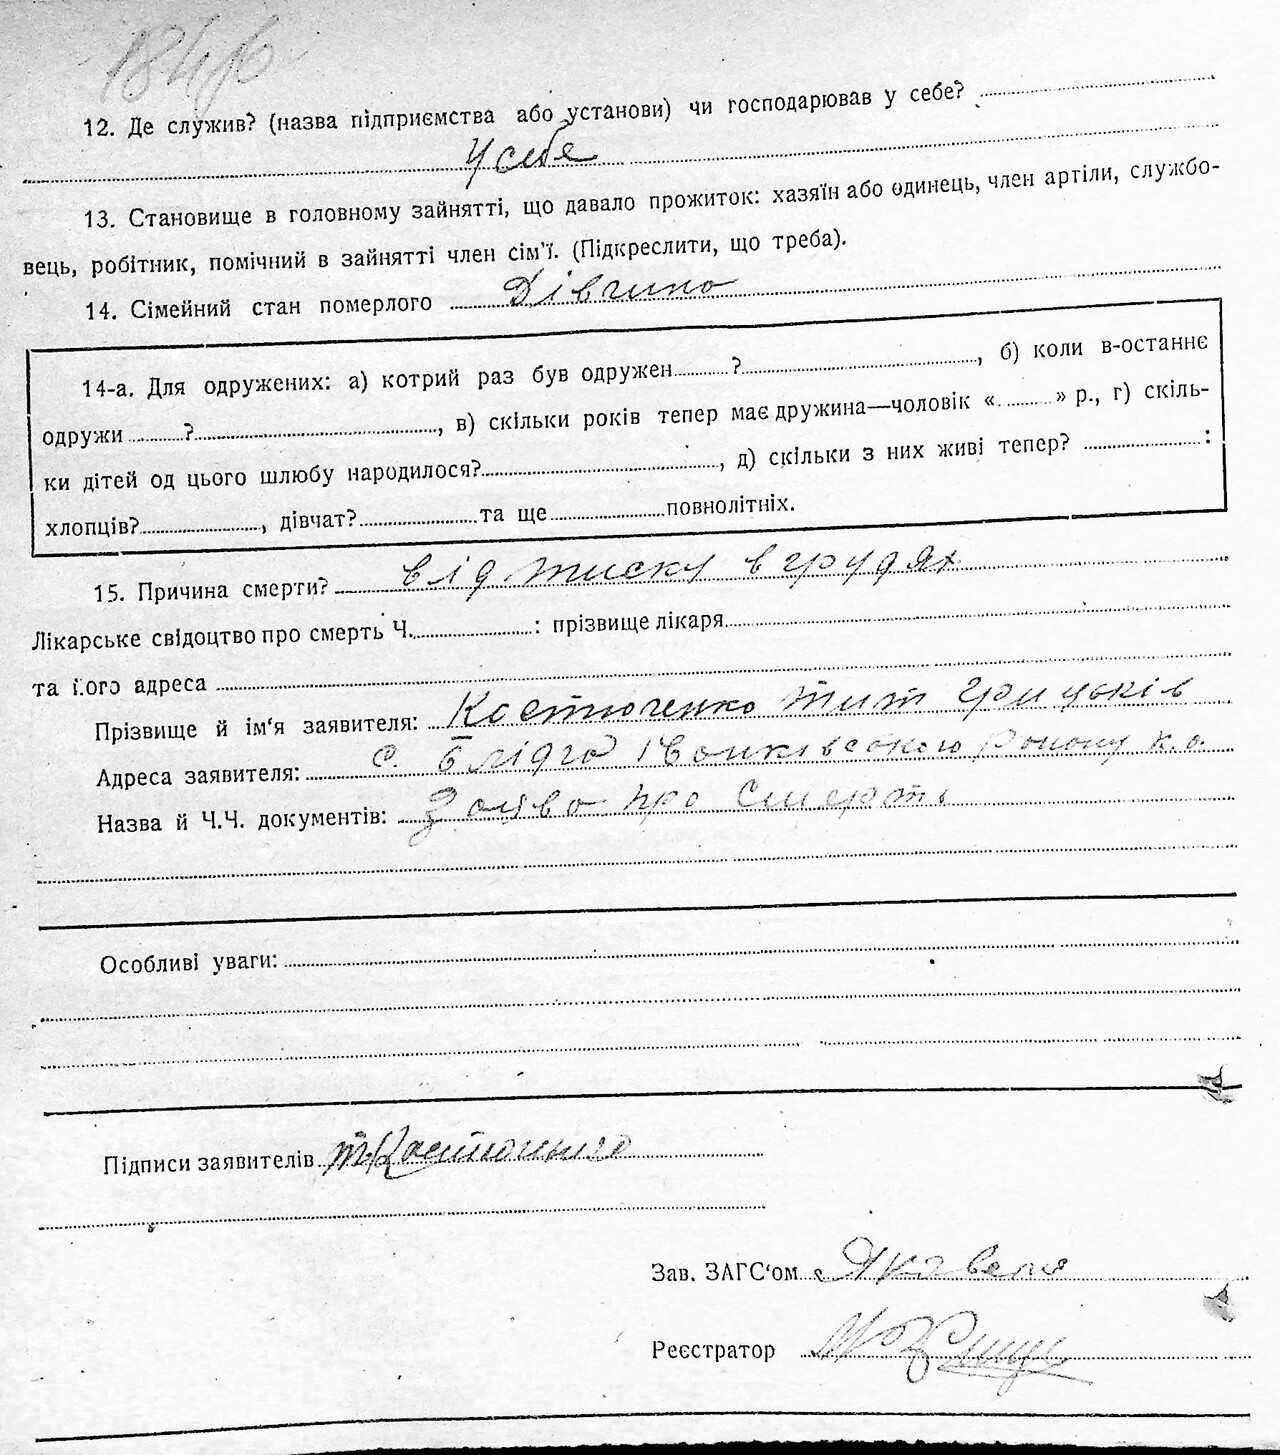 12. Де служив? (назва підприємства або установи) чи господарював у себе?
У себе
13. Становище в головному зайнятті, що давало прожиток: хазяїн або одинець, член артіли, службо-
вець, робітник, помічний в зайнятті член сім'ї. (Підкреслити, що треба).
14. Сімейний стан померлого Дівчина
14-а. Для одружених: а) котрий раз був одружен ? , б) коли в-останнє
одружи ? , в) скільки років тепер має дружина—чоловік « » р., г) скіль-
ки дітей од цього шлюбу народилося? , д) скільки з них живі тепер? :
хлопців? , дівчат? та ще повнолітніх.
15. Причина смерти? від тиску в грудях
Лікарське свідоцтво про смерть Ч. : прізвище лікаря
та його адреса
Прізвище й ім'я заявителя: Костюченко Тит Грицьків
Адреса заявителя: с. Блідча Іванківського Району К. о.
Назва й Ч.Ч. документів: Заява про Смерть
Особливі уваги:
Підписи заявителів
Зав. ЗАГС'ом
Реєстратор